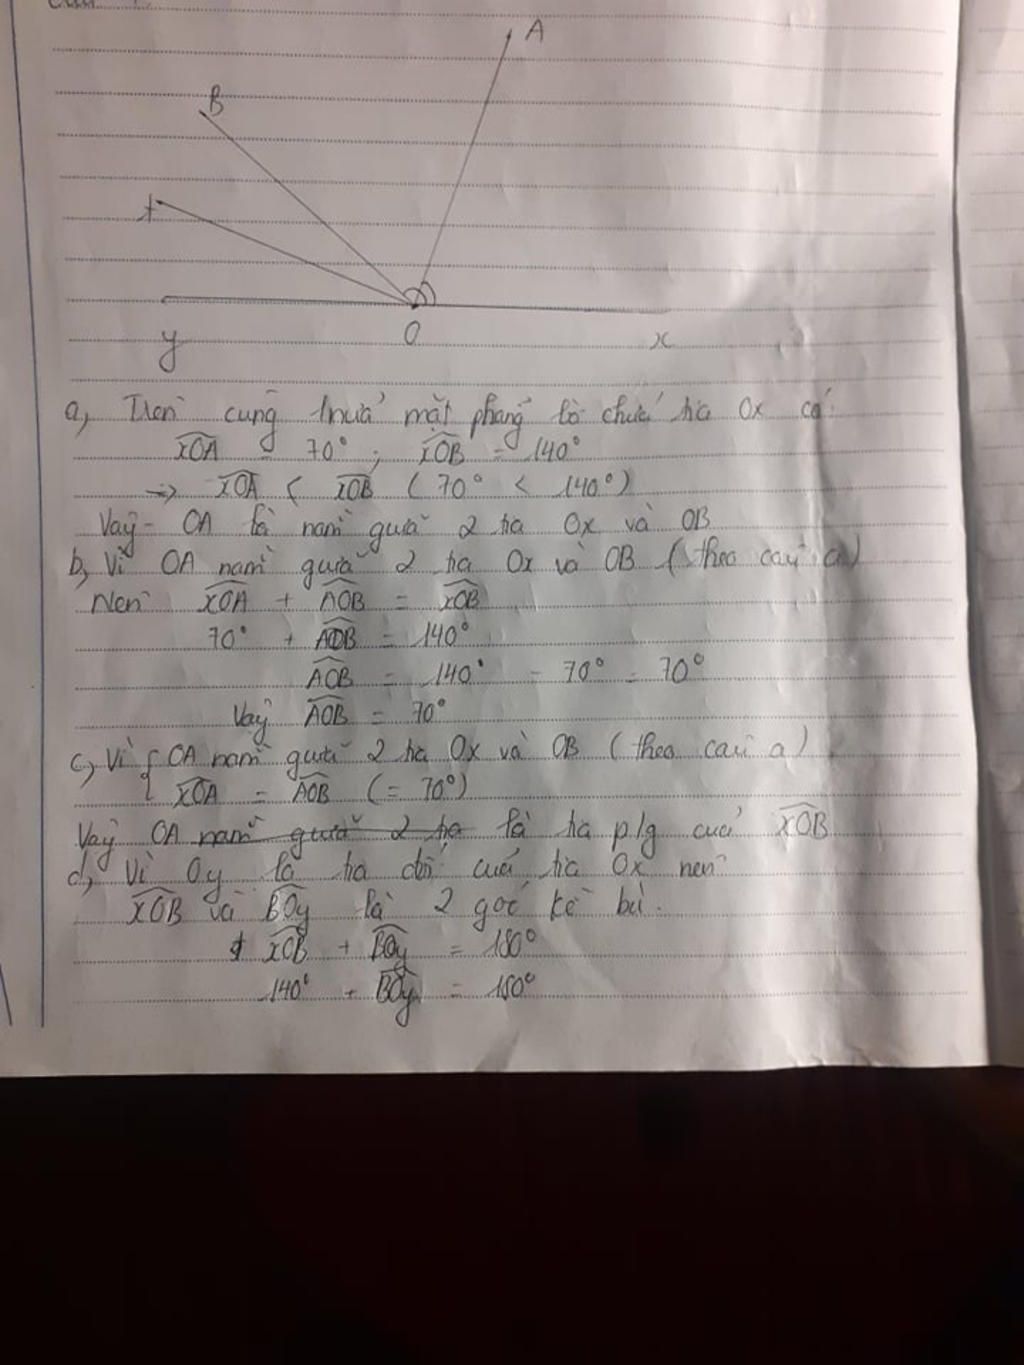 A
B
t
y
O
x
a, Trên cùng 1 nửa mặt phẳng bờ chứa tia Ox có:
xOA = 70° ; xOB = 140°
=> xOA < xOB (70° < 140°)
Vậy OA là nằm giữa 2 tia Ox và OB
b, Vì OA nằm giữa 2 tia Ox và OB (theo câu a)
Nên xOA + AOB = xOB
70° + AOB = 140°
AOB = 140° - 70° = 70°
Vậy AOB = 70°
c, Vì { OA nằm giữa 2 tia Ox và OB (theo câu a)
xOA = AOB (= 70°)
Vậy OA nằm giữa 2 tia là tia p/g của xOB
d, Vì Oy là tia đối của tia Ox nên
xOB và BOy là 2 góc kề bù.
xOB + BOy = 180°
140° + BOy = 180°